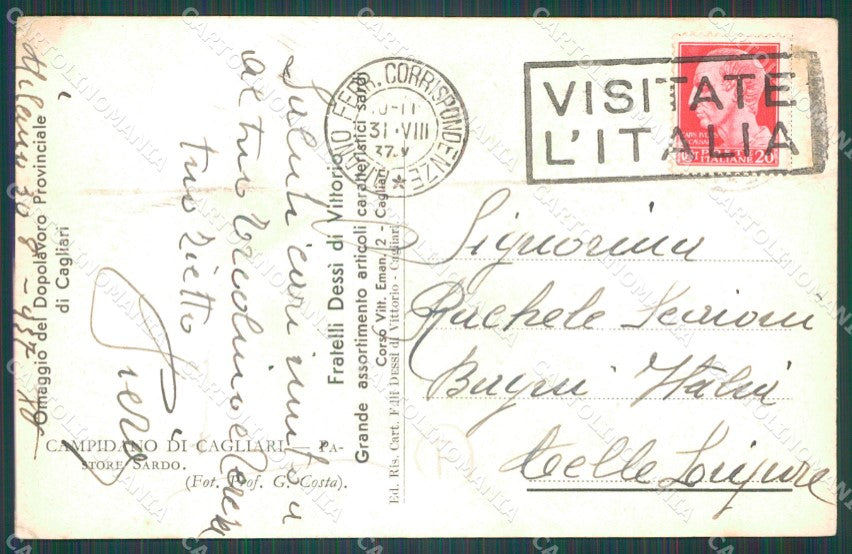 Omaggio del Dopolavoro Provinciale
di Cagliari
Milano 30-8-937
Saluti cari unita
al tuo
tuo zietto
Piero
Fratelli Dessi di Vittorio
Grande assortimento articoli caratteristici sardi
Corso Vitt. Eman. 2 - Cagliari
Ed. Ris. Cart. F.lli Dessi di Vittorio - Cagliari
CAMPIDANO DI CAGLIARI — PA-
STORE SARDO.
(Fot. Prof. G. Costa).
FERR. CORRISPONDENZE
31 VIII
37
VISITATE
L'ITALIA
POSTE
ITALIANE 20
Signorina
Rachele
Bagni Italia
Celle Ligure
CARTOLINOMANIA